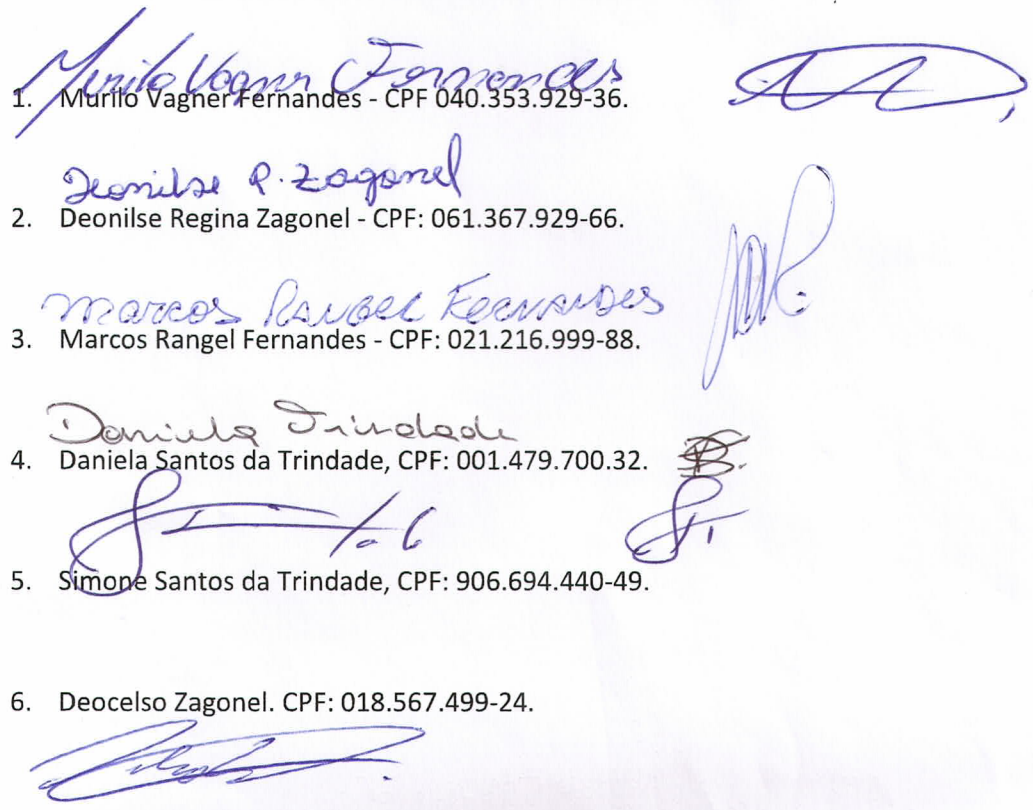 Murilo Vagner Fernandes
1. Murilo Vagner Fernandes - CPF 040.353.929-36.
Deonilse R. Zagonel
2. Deonilse Regina Zagonel - CPF: 061.367.929-66.
Marcos Rangel Fernandes
3. Marcos Rangel Fernandes - CPF: 021.216.999-88.
Daniela Trindade
4. Daniela Santos da Trindade, CPF: 001.479.700.32.
5. Simone Santos da Trindade, CPF: 906.694.440-49.
6. Deocelso Zagonel. CPF: 018.567.499-24.